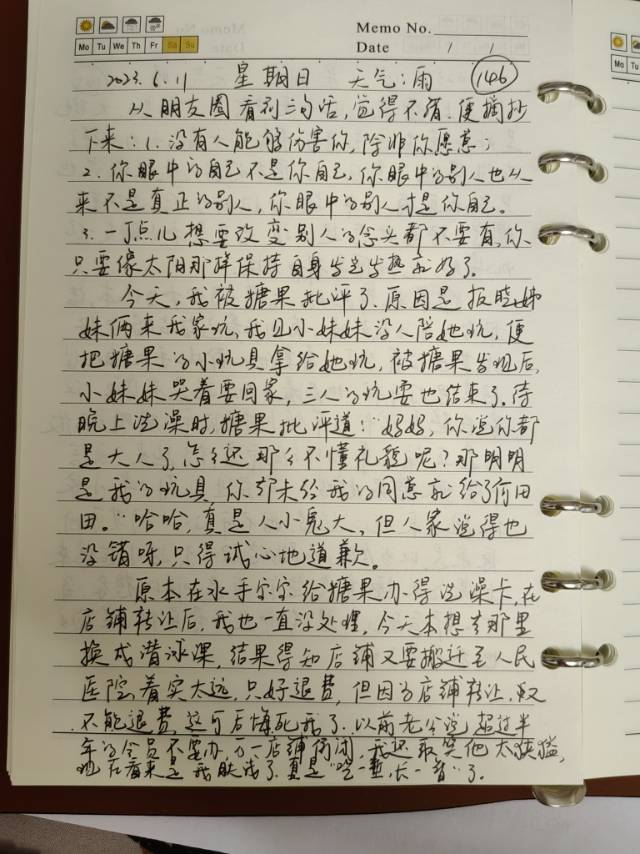 Memo No.
Mo Tu We Th Fr Sa Su
Date / /
2023.6.11 星期日 天气:雨 146
从朋友圈看到三句话,觉得不错,便摘抄
下来:1.没有人能够伤害你,除非你愿意;
2.你眼中的自己不是你自己,你眼中的别人也从
来不是真正的别人,你眼中的别人才是你自己。
3.一丁点儿想要改变别人的念头都不要有,你
只要像太阳那样保持自身发光发热就好了。
今天,我被糖果批评了.原因是 姊
妹俩来我家玩,我见小妹妹没人陪她玩,便
把糖果的小玩具拿给她玩,被糖果发现后,
小妹妹哭着要回家,三人的玩耍也结束了.待
晚上洗澡时,糖果批评道:"妈妈,你说你都
是大人了,怎么还那么不懂礼貌呢?那明明
是我的玩具,你都未经我的同意就给了何田
田。"哈哈,真是人小鬼大,但人家说得也
没错呀,只得诚心地道歉。
原本在水手尔尔给糖果办得洗澡卡,在
店铺转让后,我也一直没处理,今天本想去那里
换成潜泳课,结果得知店铺又要搬迁至人民
医院着实太远,只好退费,但因为店铺转让,又
不能退费,这可后悔死我了.以前老公说超过半
年的会员不要办,万一店铺倒闭,我还取笑他太狭隘,
现在看来是我肤浅了.真是"吃一堑,长一智"了.